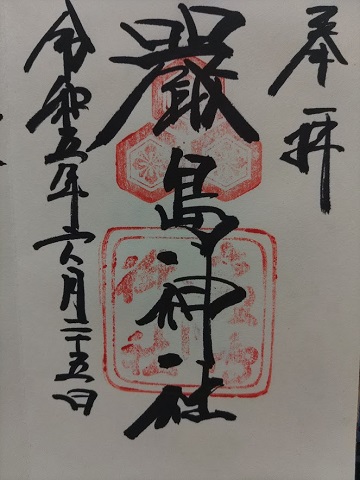 奉拝
嚴島神社
令和五年六月二十五日